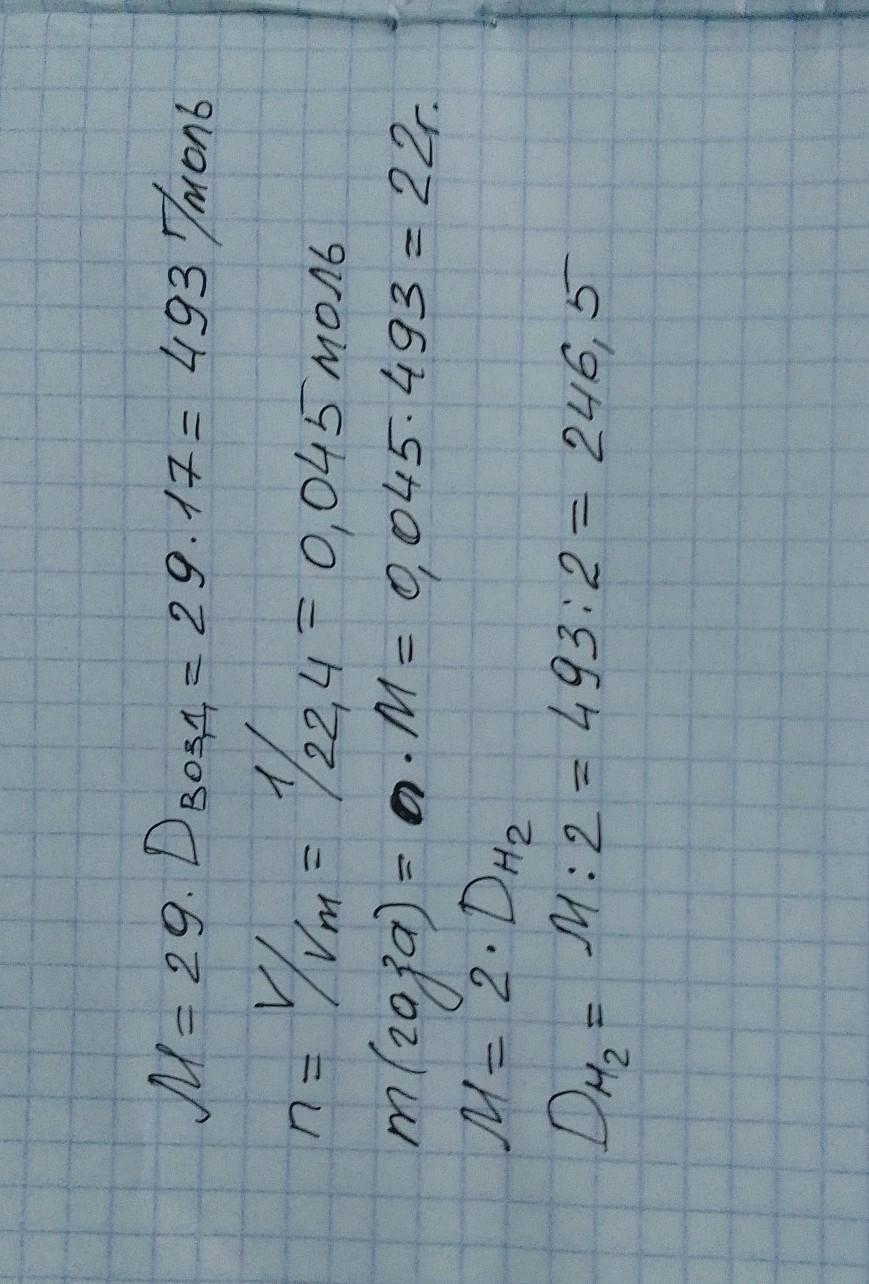 M = 29 · Dвозд = 29 · 17 = 493 г/моль
n = V/Vm = 1/22,4 = 0,045 моль
m(газа) = n · M = 0,045 · 493 = 22г.
M = 2 · DH2
DH2 = M : 2 = 493 : 2 = 246,5